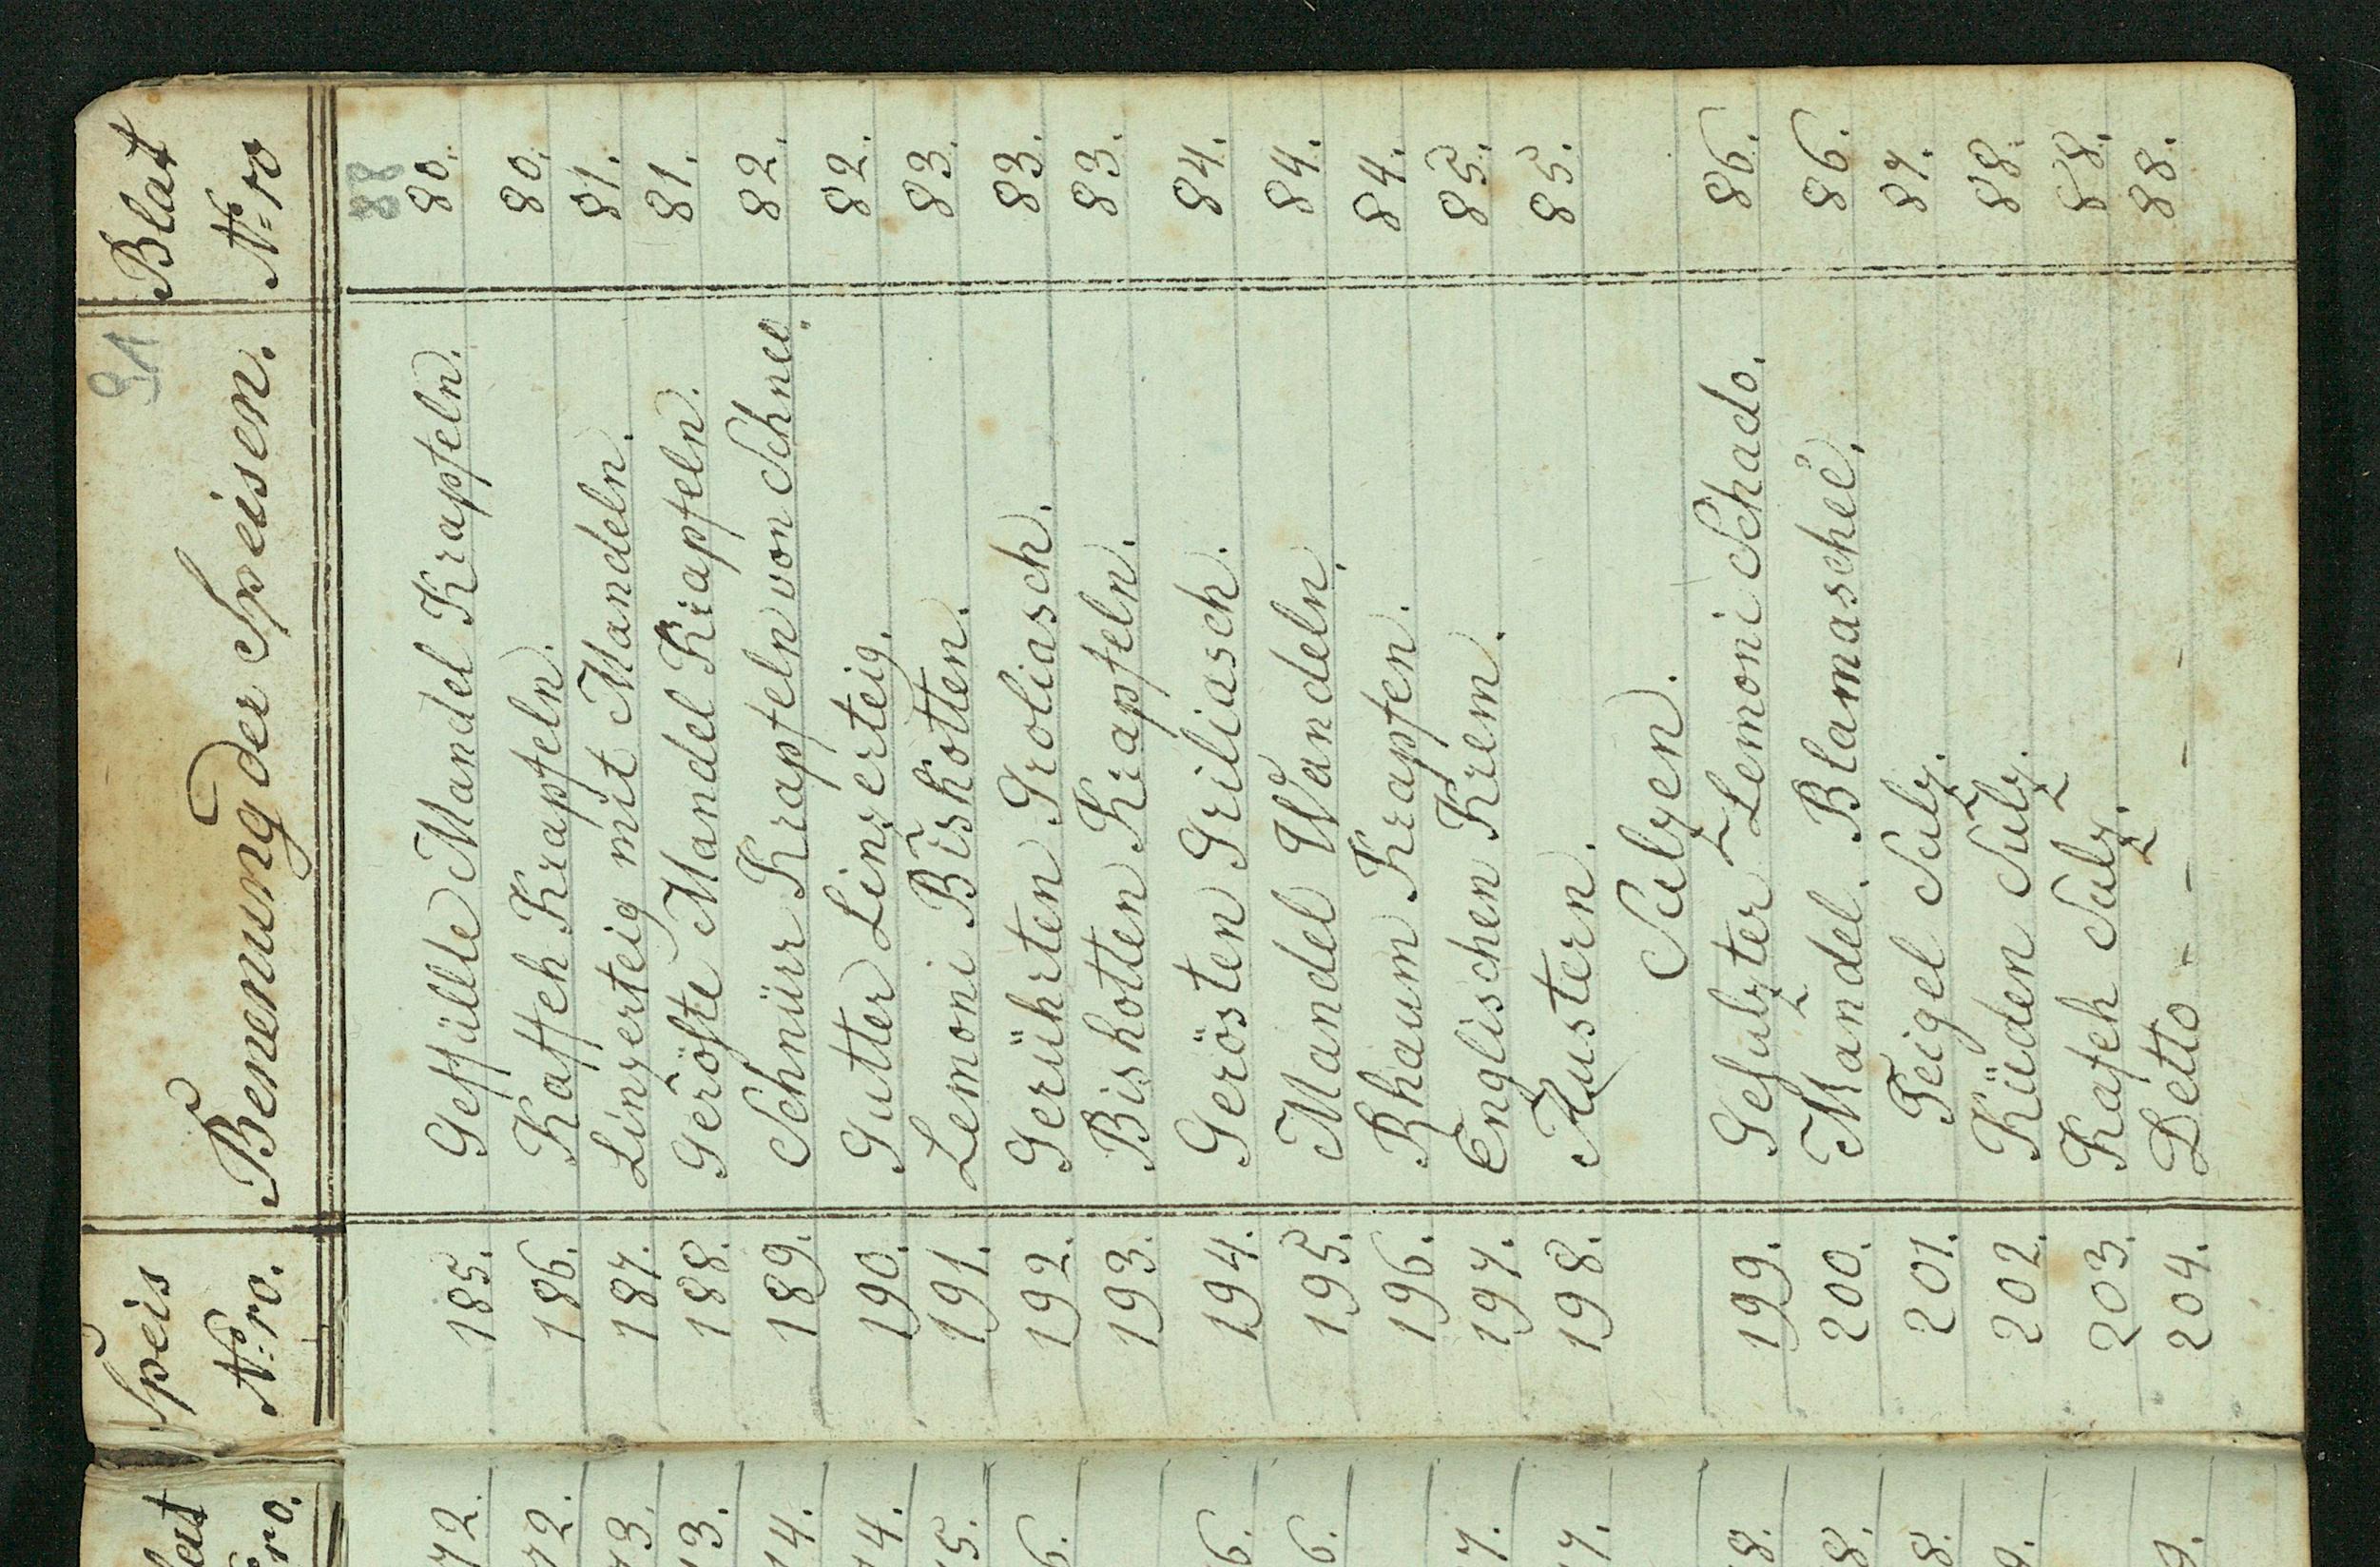 91
Speis Nro. Benennung der Speisen. Blat Nro
88
185. Geffüllte Mandel Krapfeln. 80.
186. Kaffeh Krapfeln. 80.
187. Linzerteig mit Mandeln. 81.
188. Geröste Mandel Krapfeln. 81.
189. Schnürr Krapfeln von Schnee. 82.
190. Gutter Linzerteig. 82.
191. Lemoni Biskotten. 83.
192. Gerührten Groliasch. 83.
193. Biskotten Krapfeln. 83.
194. Gerösten Griliasch. 84.
195. Mandel Wandeln. 84.
196. Rhaum Krapfen. 84.
197. Englischen Krem. 85.
198. Austern. 85.
Sulzen.
199. Gesulzter Lemoni Schado. 86.
200. Mandel. Blamascheè. 86.
201. Feigel Sulz. 87.
202. Küden Sulz. 88.
203. Kafeh Sulz. 88.
204. Detto - - - - - 88.